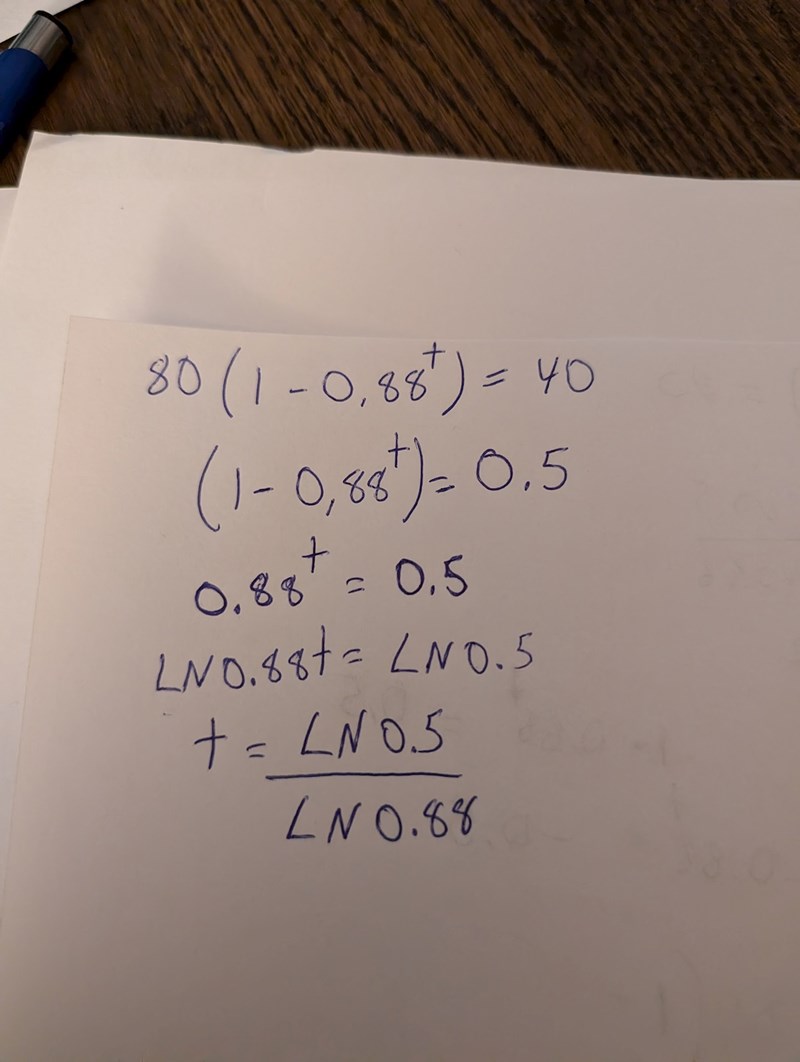 80(1-0,88^t)=40
(1-0,88^t)=0.5
0.88^t=0.5
LN0.88t=LN0.5
t=LN0.5
LN0.88